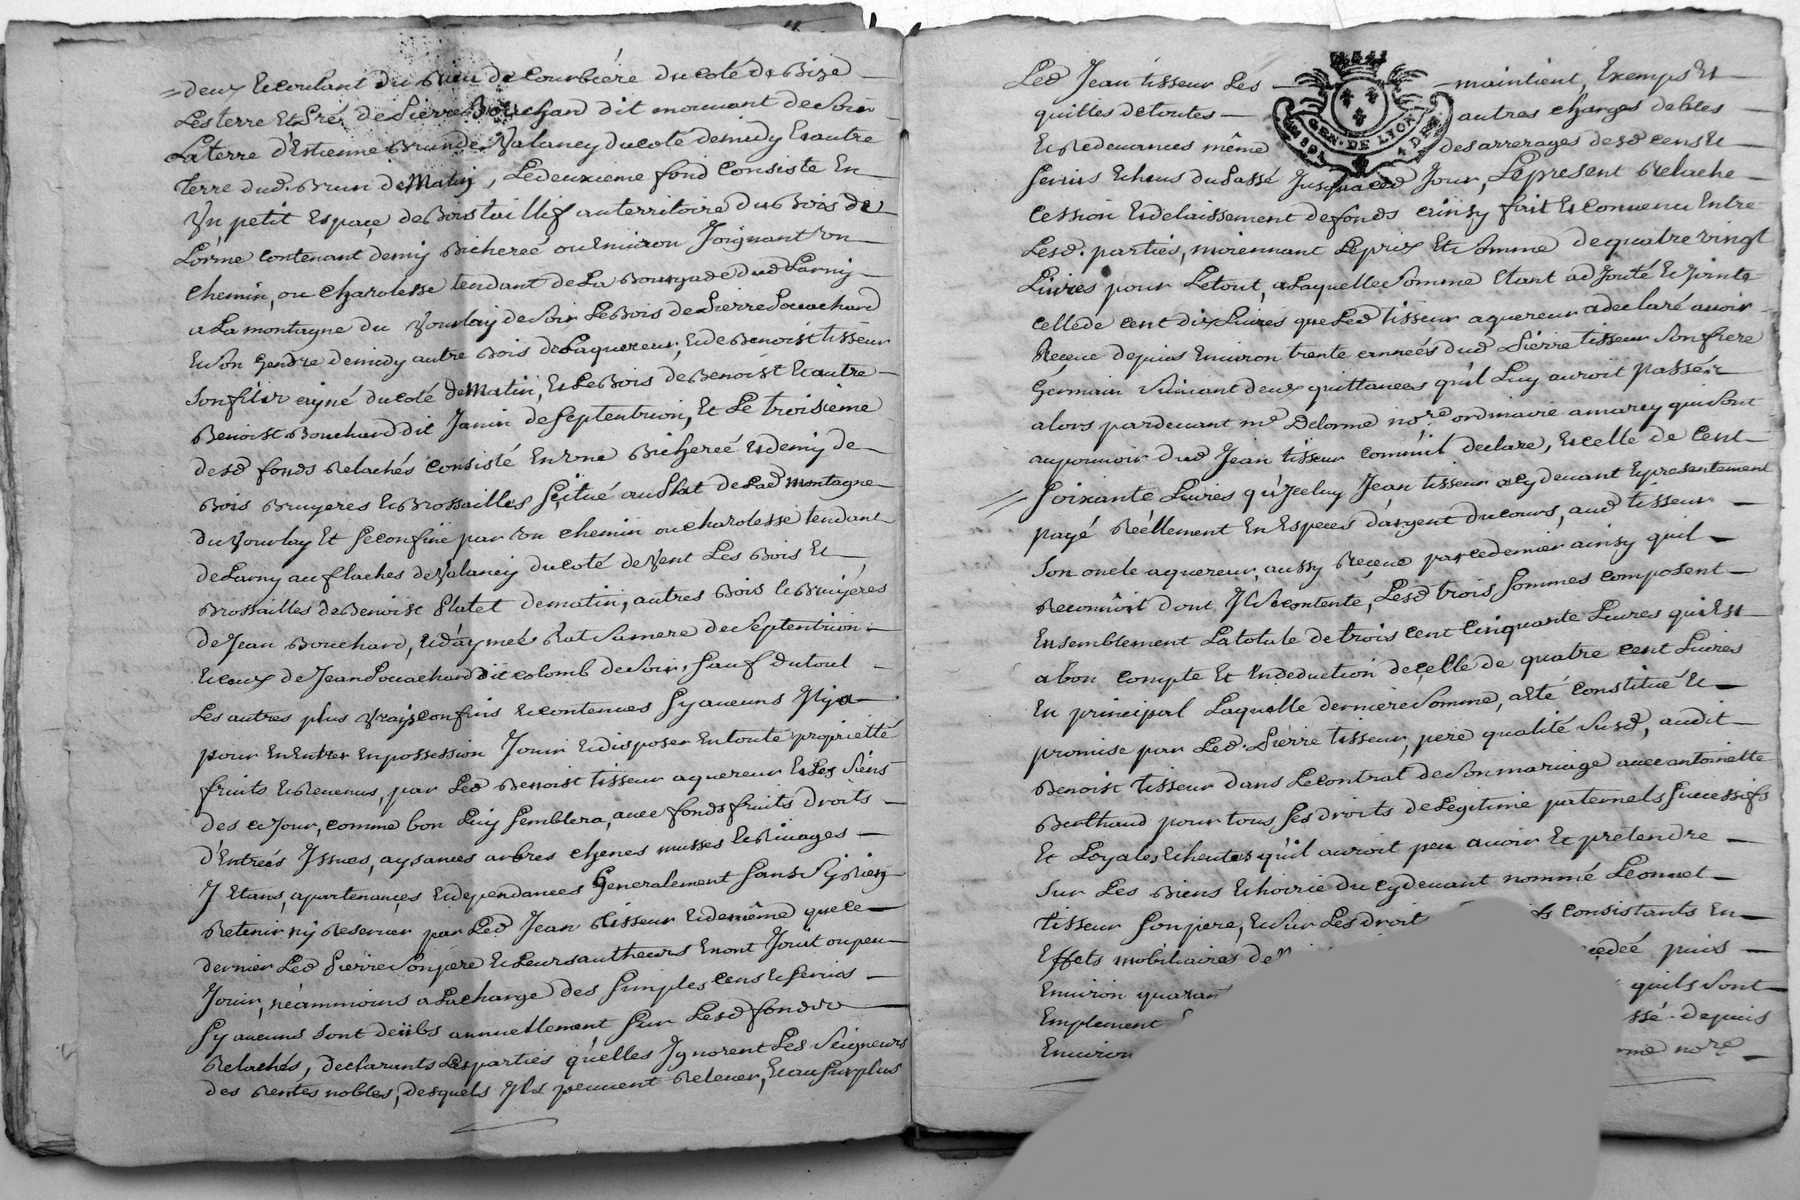 = deux Ecoulant du Rieu de Courbiére du coté de Bize
Les terre Et Pré de Pierre Bouchard dit mouvant de Soir
La terre d'Estienne Brun de Valancy du coté de midy Et autre
terre dud. Brun de Matin, Le deuxieme fond Consiste En
Un petit Espace de Bois taillif au territoire du Bois de
L'orme contenant demy Bichereé ou Environ Joignant Un
chemin, ou charolesse tendant de La Bourgade dud Larny
a La montagne du Vourlay de Soir Le Bois de Pierre Pouachard
Et Son Gendre de midy autre Bois de Laquereur, Et de Benoist tisseur
Son frere ayné du coté de Matin, Et Le Bois de Benoist Et autre
Benoist Bouchard dit Janin de Septentrion, Et Le troisieme
desd fonds Relachés Consisté En Une Bichereé Et demy de
Bois Bruyeres Et Brossailles Scitué au Plat de Lad montagne
du Vourlay Et Se confine par Un chemin ou charolesse tendant
de Larny au flaches de Valancy du coté de Vent Les Bois Et
Brossailles de Benoist Platet de matin, autres Bois Et Bruyéres
de Jean Bouchard, Et d'aymeé Rat Sa mere de Septentrion
Et Ceux de Jean Pouachard dit colomb de Soir, Sauf du tout
Les autres plus Vrays confins Et contenues Sy aucuns Il y a
pour En Entrer En possession Jouir Et disposer En toute proprieté
fruits Et Revenus, par Led Benoist tisseur aquereur Et Les Siens
des ce Jour, comme bon Luy Semblera, avec fonds fruits droits
d'Entreés Issues, aysances arbres chenes musses Et Rivages
J Etans, apartenances Et dependances Generalement Sans Sy Rien
Retenir ny Reserver par Led Jean tisseur Et de même que ce
dernier Led Pierre Son pere Et Leurs autheurs En ont Jouit ou peu
Jouir, néammoins a La charge des Simples cens Et Servis
Sy aucuns Sont deübs annuellement Sur Lesd fonds
Relachés, declarants Les parties qu'elles Ignorent Les Seigneurs
des Rentes nobles, desquels Ils peuvent Relever, Et au Surplus
Led Jean tisseur Les maintient, Exemps Et
quittes de toutes autres charges debtes
Et Redevances même des arrerages desd cens Et
Servis Echeus du Passé Jusqu'a ced Jour, Le present Relache
Cession Et delaissement de fonds ainsy fait Et convenu Entre
Lesd. parties, moiennant Le prix Et Somme de quatre vingt
Livres pour Le tout, a Laquelle Somme Etant ad Jouté Et Jointe
celle de cent dix Livres que Led tisseur aquereur a declaré avoir
Reçeue depuis Environ trente anneés dud Pierre tisseur Son frere
Germain Suivant deux quittances qu'il Luy auroit passée
alors pardevant me Delorme nore ordinaire a marcy qui Sont
au pouvoir dud Jean tisseur comm'il declare, Et celle de Cent
= Soixante Livres qu'Jceluy Jean tisseur a Cy devant Et presentement
payé Réellement En Especes d'argent du cours, aud tisseur
Son oncle aquereur, aussy Reçeue par ce dernier ainsy quil
Reconnoit dont Il Se contente, Lesd trois Sommes composent
Ensemblement La totale de trois Cent Cinquante Livres qui Est
a bon compte Et En deduction de çelle de quatre Cent Livres
En principal Laquelle derniere Somme, a Eté Constitueé Et
promise par Led. Pierre tisseur, pere qualité Susd, audit
Benoist tisseur dans Le contrat de Son mariage avec antoinette
Berthaud pour tous Ses droits de Legitime paternels Successifs
Et Loyales Echeutes qu'il auroit peu avoir Et pretendre
Sur Les Biens Et hoirie du Cy devant nommé Leonnet
tisseur Son pere, Et Sur Les droit consistants En
Effets mobiliaires de cedeé puis
Environ quaran quils Sont
Emplement ssé depuis
Environ nore
GEN. DE LYON